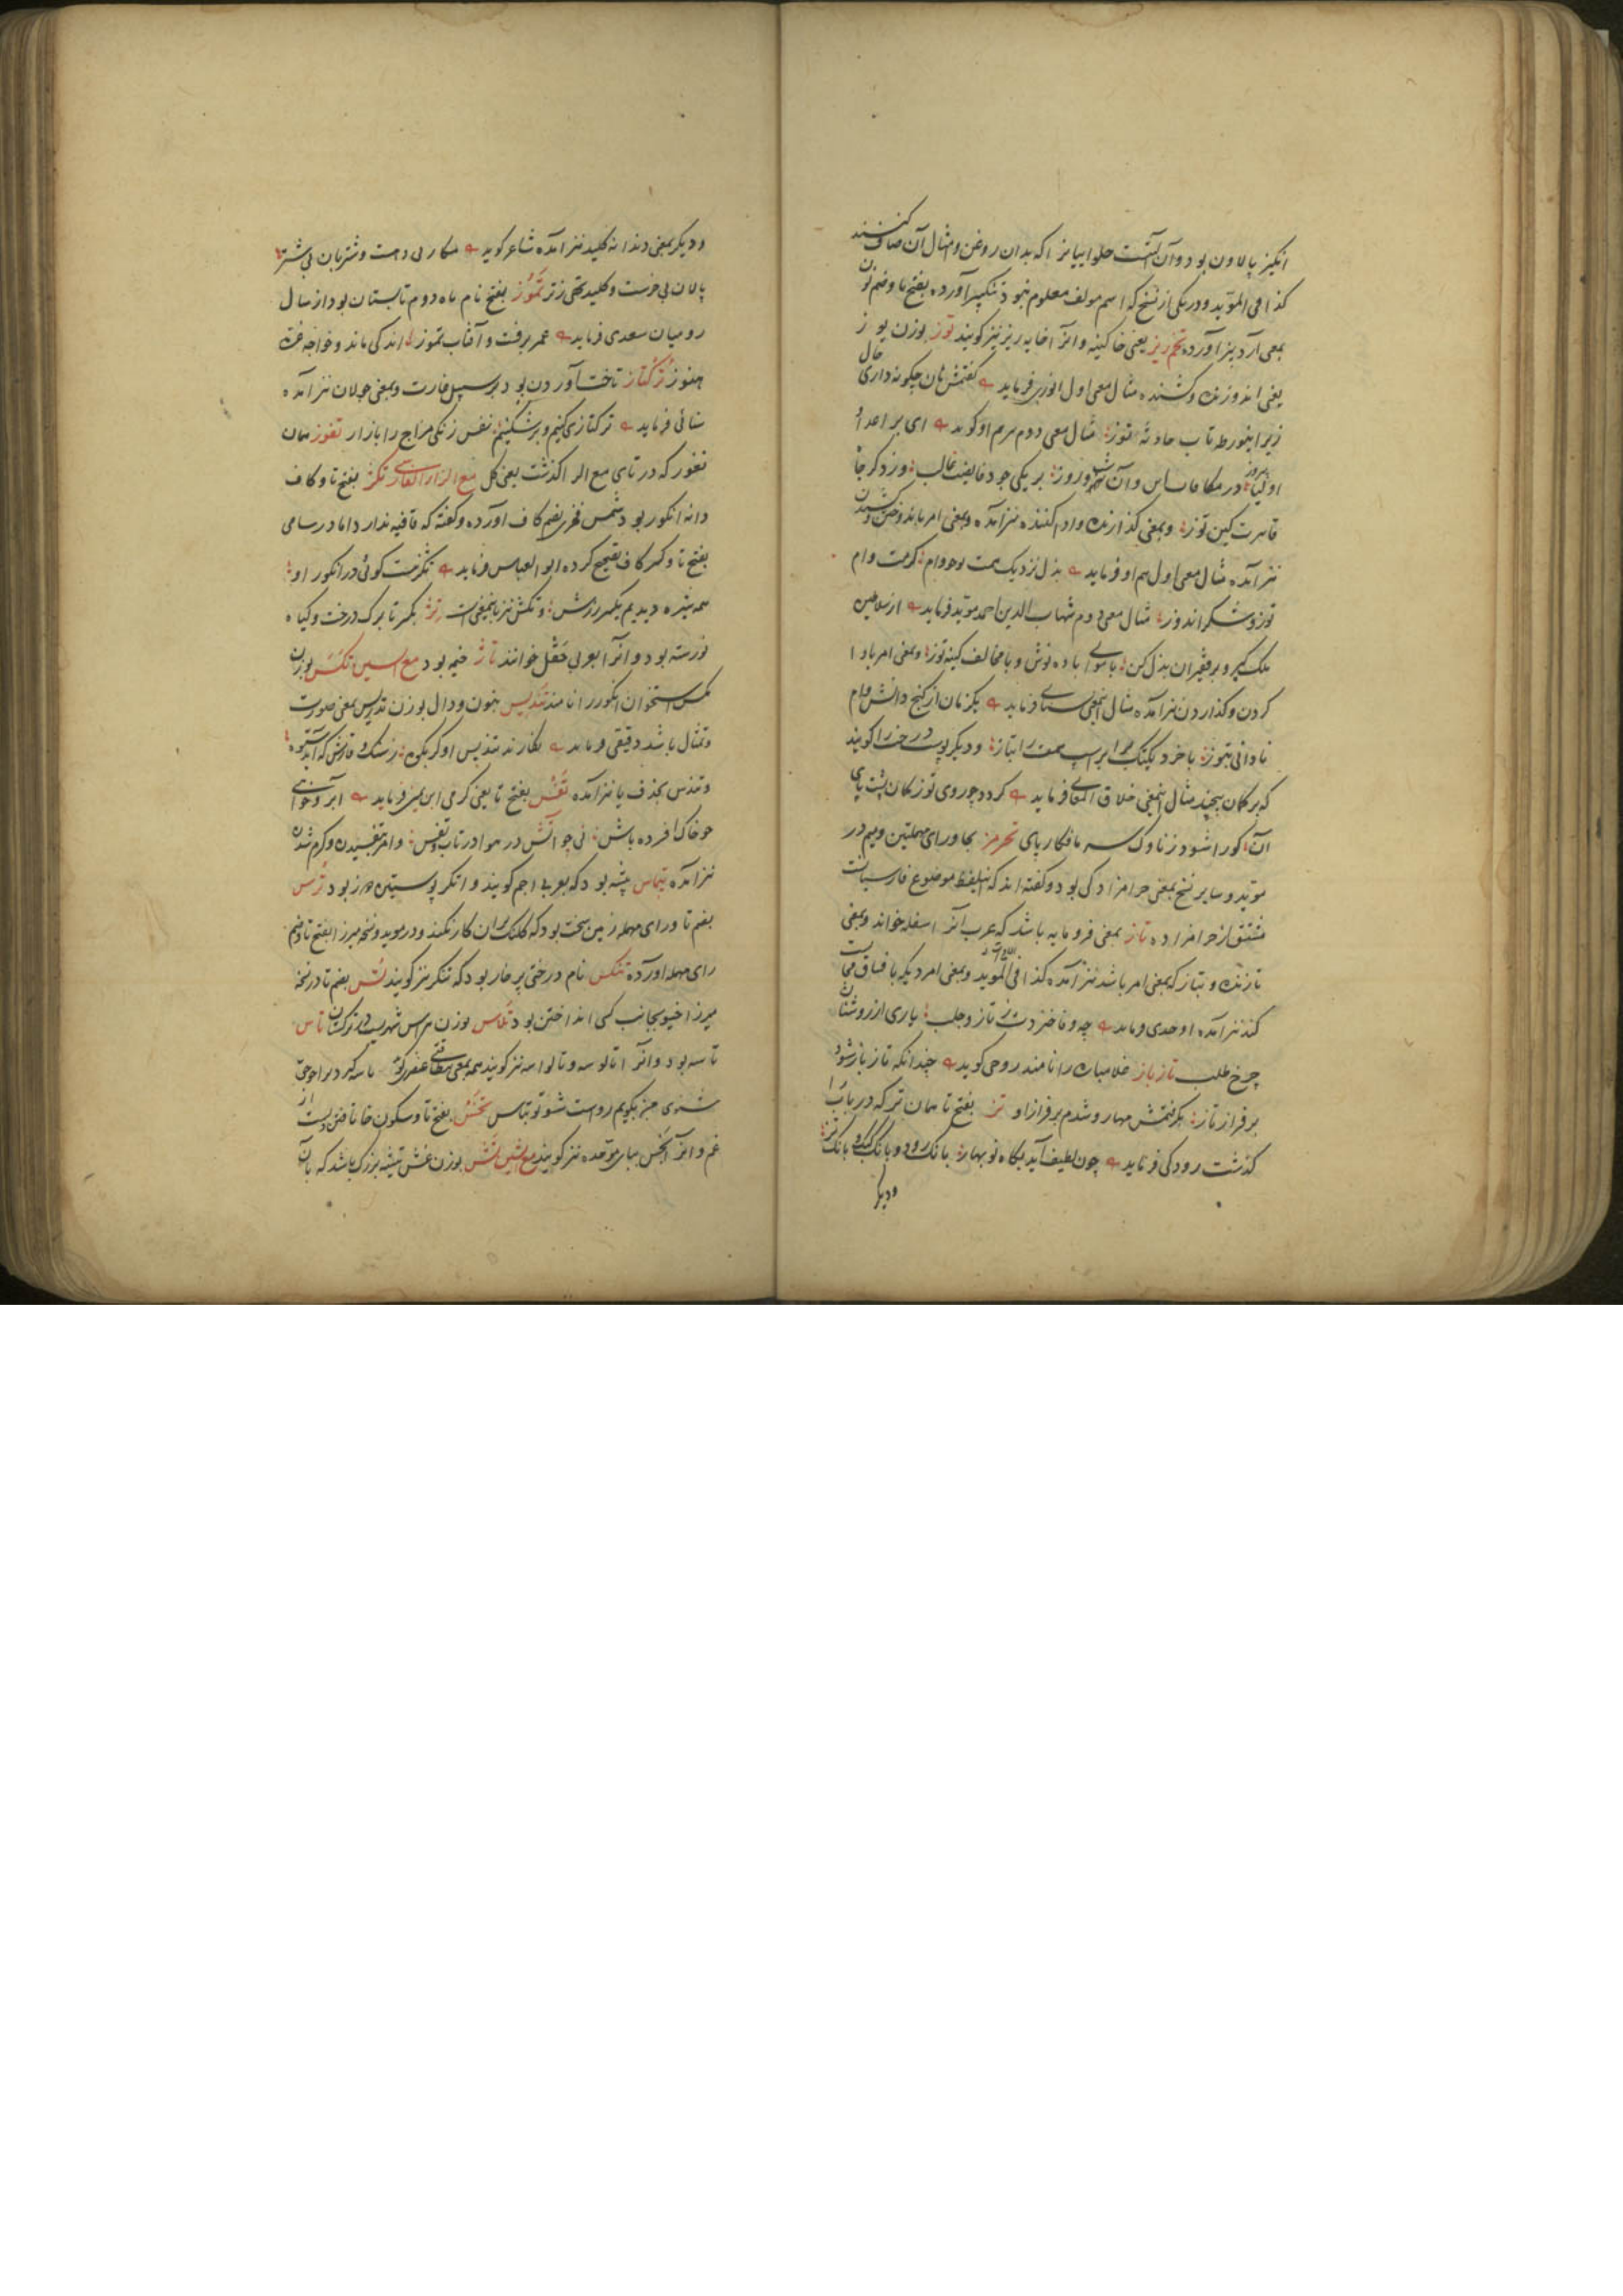 انکیز پالاون بود و آن آلتیست حلوایانرا که بدان روغن و امثال آن صاف کنند
کذا فی المؤید و در یکی از نسخ که اسم مولف معلوم نبود تنکبیز آورده بفتح تا و ضم نون
بمعنی آرد بیز آورده تخم ریز یعنی خاکینه و انرا خایه ریز نیز کویند توز بوزن یوز
یعنی اندوزنده و کشنده مثال معنی اول انوری فرماید کفتمش نان چکونه داری حال
زیر این ورطه تاب حادثه توز مثال معنی دوم هم او کوید ای بر اعدا و
اولیا پیروز در مکافات این و آن شب و روز بر یکی جود فایضت غالب وز دکر جا
قاهرت کین توز و بمعنی کذارنده وام کننده نیز آمده و بمعنی امر باندوختن و کشیدن
نیز آمده مثال معنی اول هم او فرماید بذل نزدیک همت تو وام کرمت وام
توز و شکر اندوز مثال معنی دوم شهاب الدین احمد موید فرماید از سلاطین
ملک کیر و بر فقیران بذل کن با موالی باده نوش و با مخالف کینه توز و بمعنی امر بادا
کردن و کذاردن نیز آمده مثال اینمعنی سنایی فرماید یکزمان از کنج دانش وام
نادانی بتوز با خرد یکتک برابر اسب همت را بتاز و دیکر پوست درختی را کویند
که بر کمان پیچند مثال اینمعنی خلاق المعانی فرماید کردد چو روی توز کمان پشت پای
آن کو را شود ز ناوک سه مافکار پای تحرمز بحا و رای مهملتین و میم در
موید و سایر نسخ بمعنی حرامزادکی بود و کفته اند که این لفظ موضوع فارسیانست
مشتق از حرامزاده تاز بمعنی فرومایه باشد که عرب آنرا سفله خواند و بمعنی
تازنده و بتاز که بمعنی امر باشد نیز آمده کذا فی المؤید و بمعنی امر دیکه با فساق مجالست
کند نیز آمده اوحدی فرماید چه وفا خیزد از تاز و جلب یاری از روشنان
چرخ طلب تاز باز غلامباره را نامند روحی کوید چندانکه تاز باز شود
بر فراز تاز بکرفتمش مهار و شدم بر فراز او تز بفتح تا همان تر که در باب را
کذشت رودکی فرماید چون لطیف آید بکاه نوبهار بانک رود و بانک کبک و بانک تز
و دیکر
و دیکر بمعنی دندانه کلید نیز آمده شاعر کوید مکاری دهست و شتربان بی شتر
پالان بی خرست و کلید تهی ز تز تموز بفتح نام ماه دوم تابستان بود از سال
رومیان سعدی فرماید عمر برفت و آفتاب تموز اندکی ماند و خواجه غره
هنوز ترکتاز تاخت آوردن بود بر سبیل غارت و بمعنی جولان نیز آمده
سنائی فرماید ترکتازی کنیم و برشکنیم نفس زنکی مزاج را بازار تغوز همان
تغور که در تای مع الرا کذشت یعنی کل مع الزاء الفارسی تکژ بفتح تا و کاف
دانه انکور بود و شمس فخری بضم کاف آورده و کفته که قافیه ندارد اما در سامی
بفتح تا و کسر کاف تصحیح کرده ابو العباس فرماید تکژ نیست کوئی در انکور او
همه شیره دیدیم یکسر رزش و تکش نیز باینمعنیست تژ بکسر تا برک درخت و کیاه
نورسته بود و آنرا بعربی حقل خوانند تاژ خیمه بود مع السین تکس بوزن
مکس استخوان انکور را نامند تندیس بنون و دال بوزن تدریس بمعنی صورت
و تمثال باشد دقیقی فرماید نکارند تندیس او کر بکوه ز سنک وقارش که آید ستوه
و تندس بحذف یا نیز آمده تفس بفتح تا یعنی کرمی ابن یمین فرماید
چو خاک افسرده باش نی چو آتش در هوا در تاب و تفس و امر بتفسیدن و کرم شدن
نیز آمده تیماس بیشه بود که بعربی اجم کویند و انکه پوستین دوز بود ترس
بضم تا و رای مهمله زمین سخت بود که کلنک بر آن کار نکند و در موید و نسخه میرزا بفتح تا و ضم
رای مهمله آورده تنکس نام درختی پر خار بود که تنکز نیز کویند تس بضم تا در نسخه
میرزا خیو بجانب کسی انداختن بود تلاس بوزن هراس شهریست در ترکستان تاس
تاسه بود و آنرا تالوسه و تالواسه نیز کویند همه بمعنی
شنوی جز بکویم راست شو تو تباس تخس بفتح تا و سکون خا تافتن دلست از
غم و انرا بخس ببای موحده نیز کویند مع الشین تش بوزن غش تیشه بزرک باشد که بآن